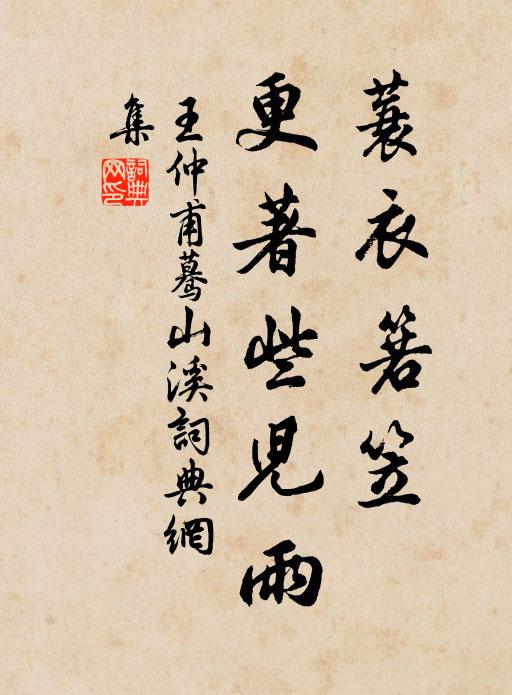 蓑衣箬笠
更著些兒雨
王仲甫驀山溪詞典網
集
詞典网印